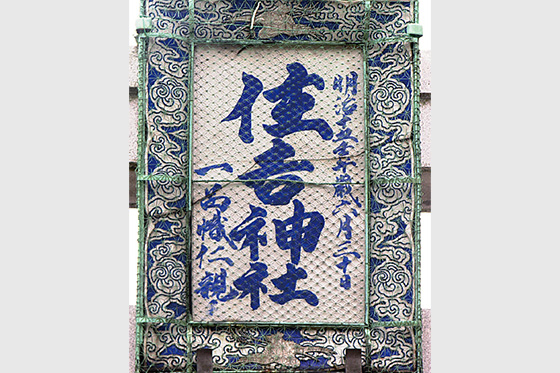 明治十五壬午歳 月 十日
住吉神社
一品幟仁親王